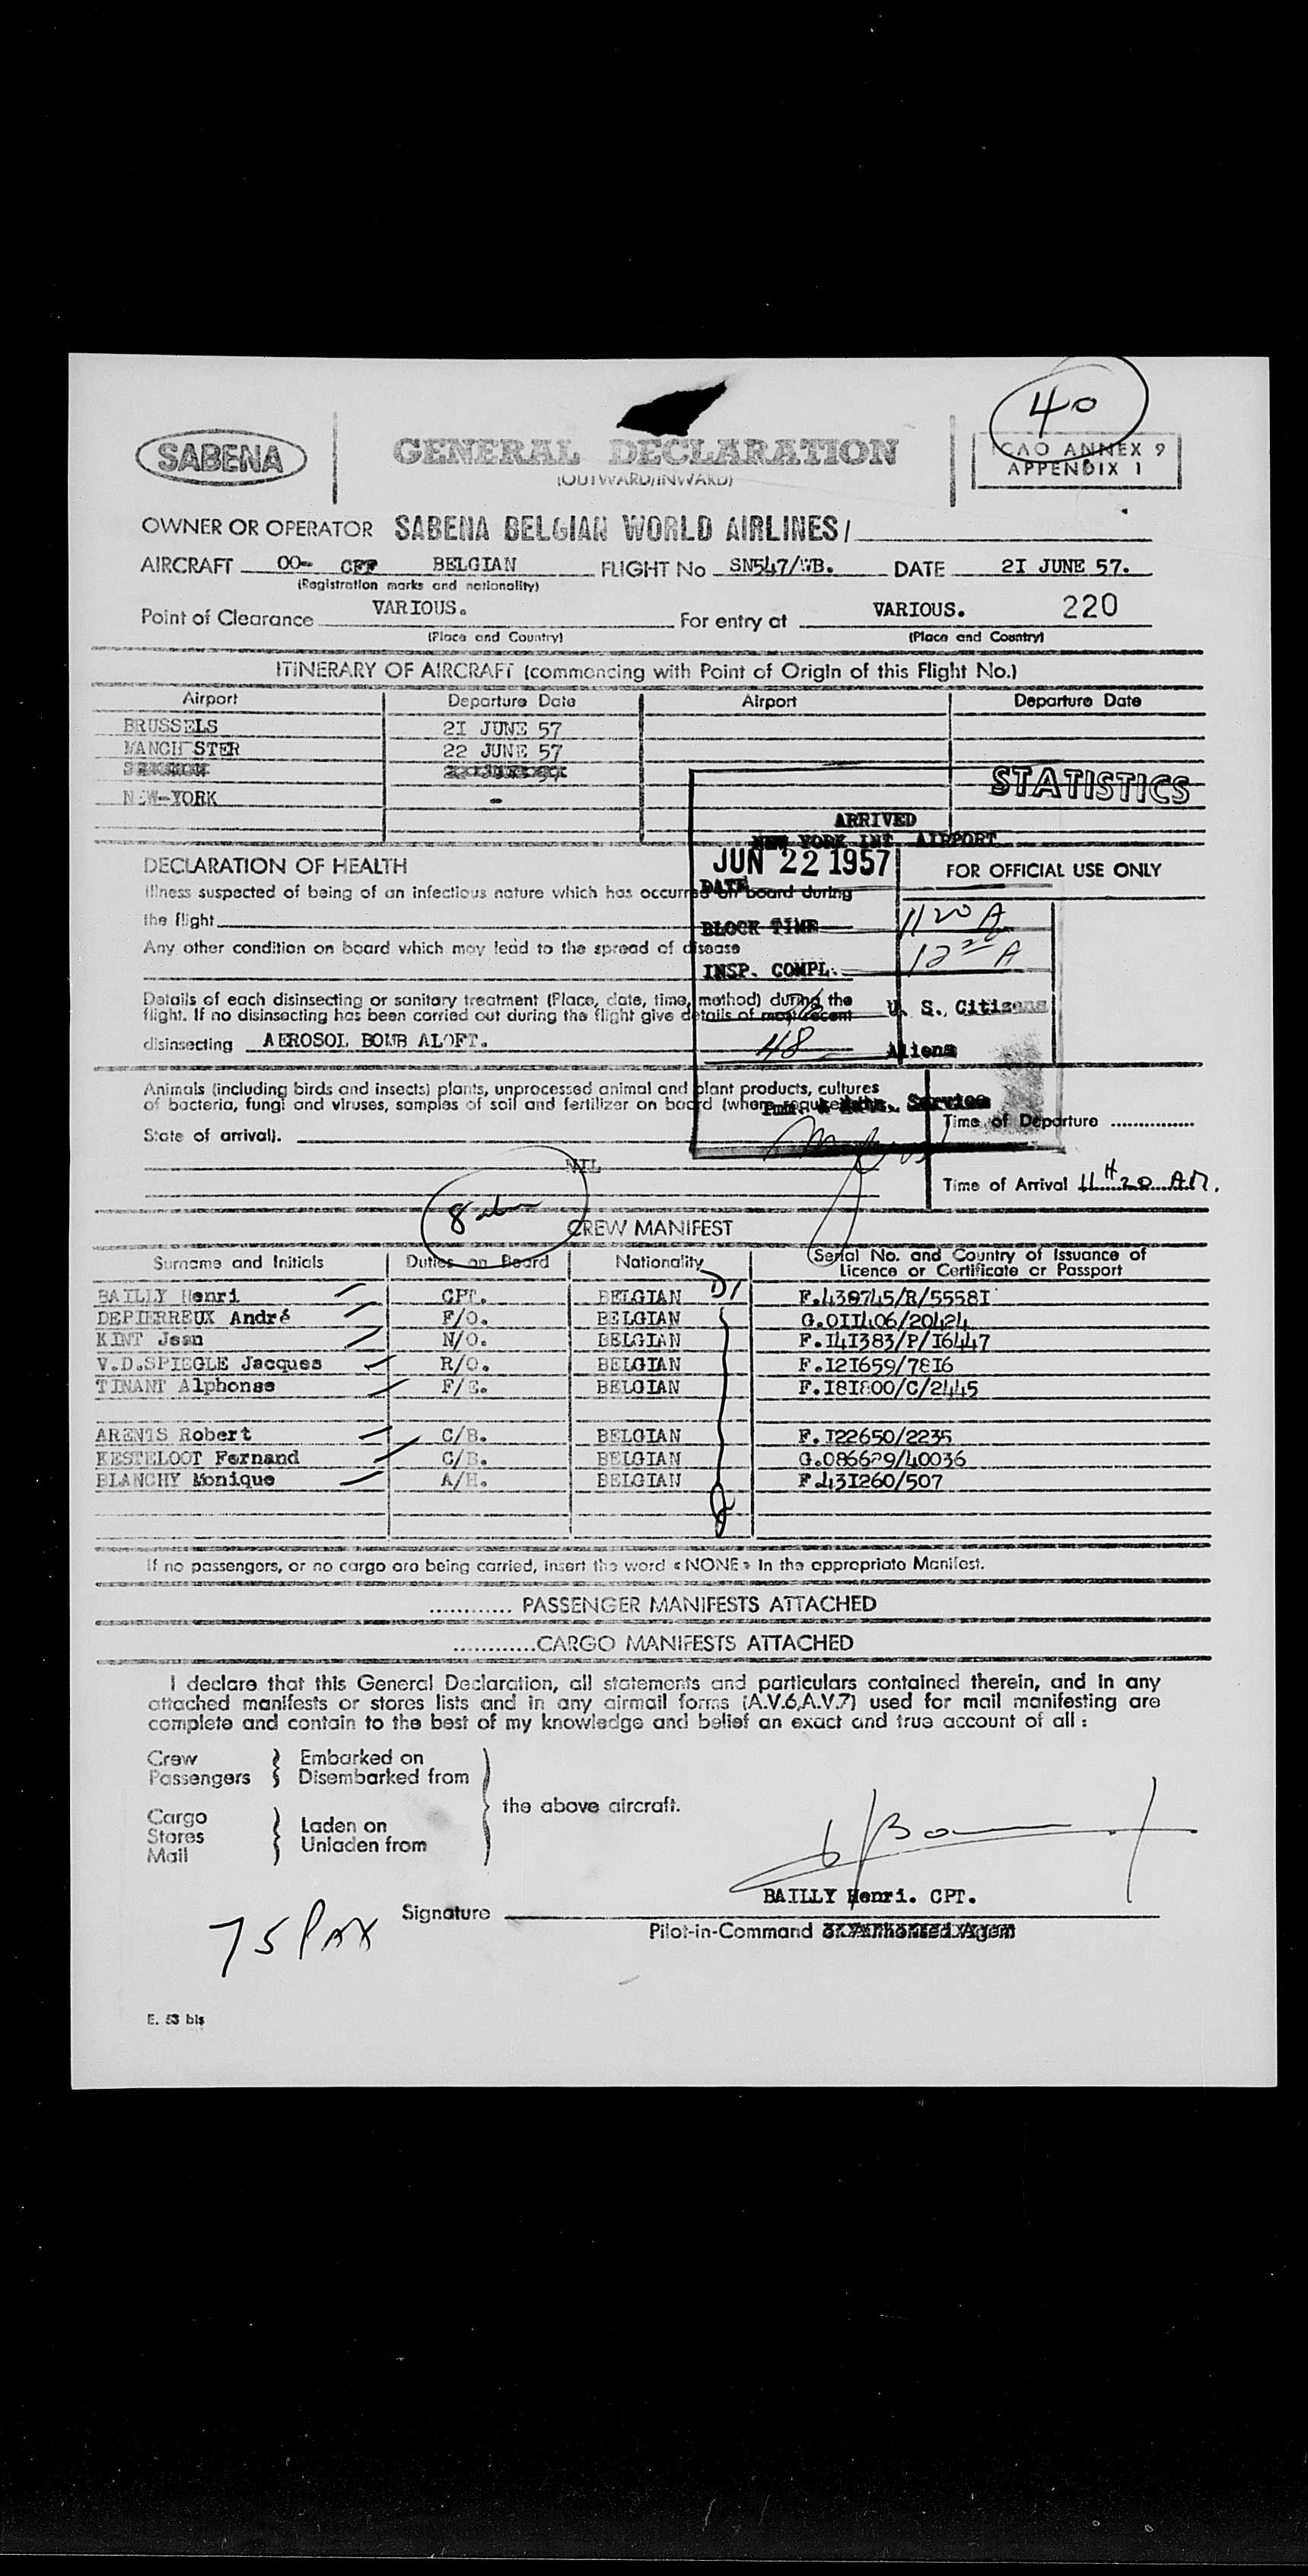 40
SABENA
GENERAL DECLARATION
(OUTWARD/INWARD)
ICAO ANNEX 9
APPENDIX 1
OWNER OR OPERATOR SABENA BELGIAN WORLD AIRLINES/
AIRCRAFT OO- BELGIAN FLIGHT No SN547/WB. DATE 2I JUNE 57.
(Registration marks and nationality)
Point of Clearance VARIOUS. For entry at VARIOUS. 220
(Place and Country) (Place and Country)
ITINERARY OF AIRCRAFT (commencing with Point of Origin of this Flight No.)
Airport Departure Date Airport Departure Date
BRUSSELS 2I JUNE 57
MANCHESTER 22 JUNE 57
NEW-YORK -
STATISTICS
ARRIVED
NEW YORK INT AIRPORT
JUN 22 1957
DATE
DECLARATION OF HEALTH
FOR OFFICIAL USE ONLY
Illness suspected of being of an infectious nature which has occurred on board during
the flight
BLOCK TIME 1120 A
Any other condition on board which may lead to the spread of disease
INSP. COMPL. 12 20 A
Details of each disinsecting or sanitary treatment (Place, date, time, method) during the
flight. If no disinsecting has been carried out during the flight give details of most recent
U. S. Citizens
disinsecting AEROSOL BOMB ALOFT.
48 Aliens
Animals (including birds and insects) plants, unprocessed animal and plant products, cultures
of bacteria, fungi and viruses, samples of soil and fertilizer on board (where required
Imm. & Service
State of arrival).
Time of Departure
NIL
Time of Arrival 11 H 20 AM.
8
CREW MANIFEST
Surname and Initials Duties on Board Nationality Serial No. and Country of Issuance of
Licence or Certificate or Passport
D1
BAILLY Henri CPT. BELGIAN F.430745/R/5558I
DEPIERREUX André F/O. BELGIAN G.0II406/20424
KINT Jean N/O. BELGIAN F.I4I383/P/I6447
V.D.SPIEGLE Jacques R/O. BELGIAN F.I2I659/78I6
TINANT Alphonse F/E. BELGIAN F.I8I800/C/2445
ARENTS Robert C/B. BELGIAN F.I22650/2235
KESTELOOT Fernand C/B. BELGIAN G.086629/40036
BLANCHY Monique A/H. BELGIAN F.43I260/507
If no passengers, or no cargo are being carried, insert the word «NONE» in the appropriate Manifest.
............ PASSENGER MANIFESTS ATTACHED
............CARGO MANIFESTS ATTACHED
I declare that this General Declaration, all statements and particulars contained therein, and in any
attached manifests or stores lists and in any airmail forms (A.V.6,A.V.7) used for mail manifesting are
complete and contain to the best of my knowledge and belief an exact and true account of all :
Crew Embarked on
Passengers Disembarked from
the above aircraft.
Cargo
Stores Laden on
Mail Unladen from
BAILLY Henri. CPT.
Signature
Pilot-in-Command or Authorised Agent
75 PAX
E. 53 bis